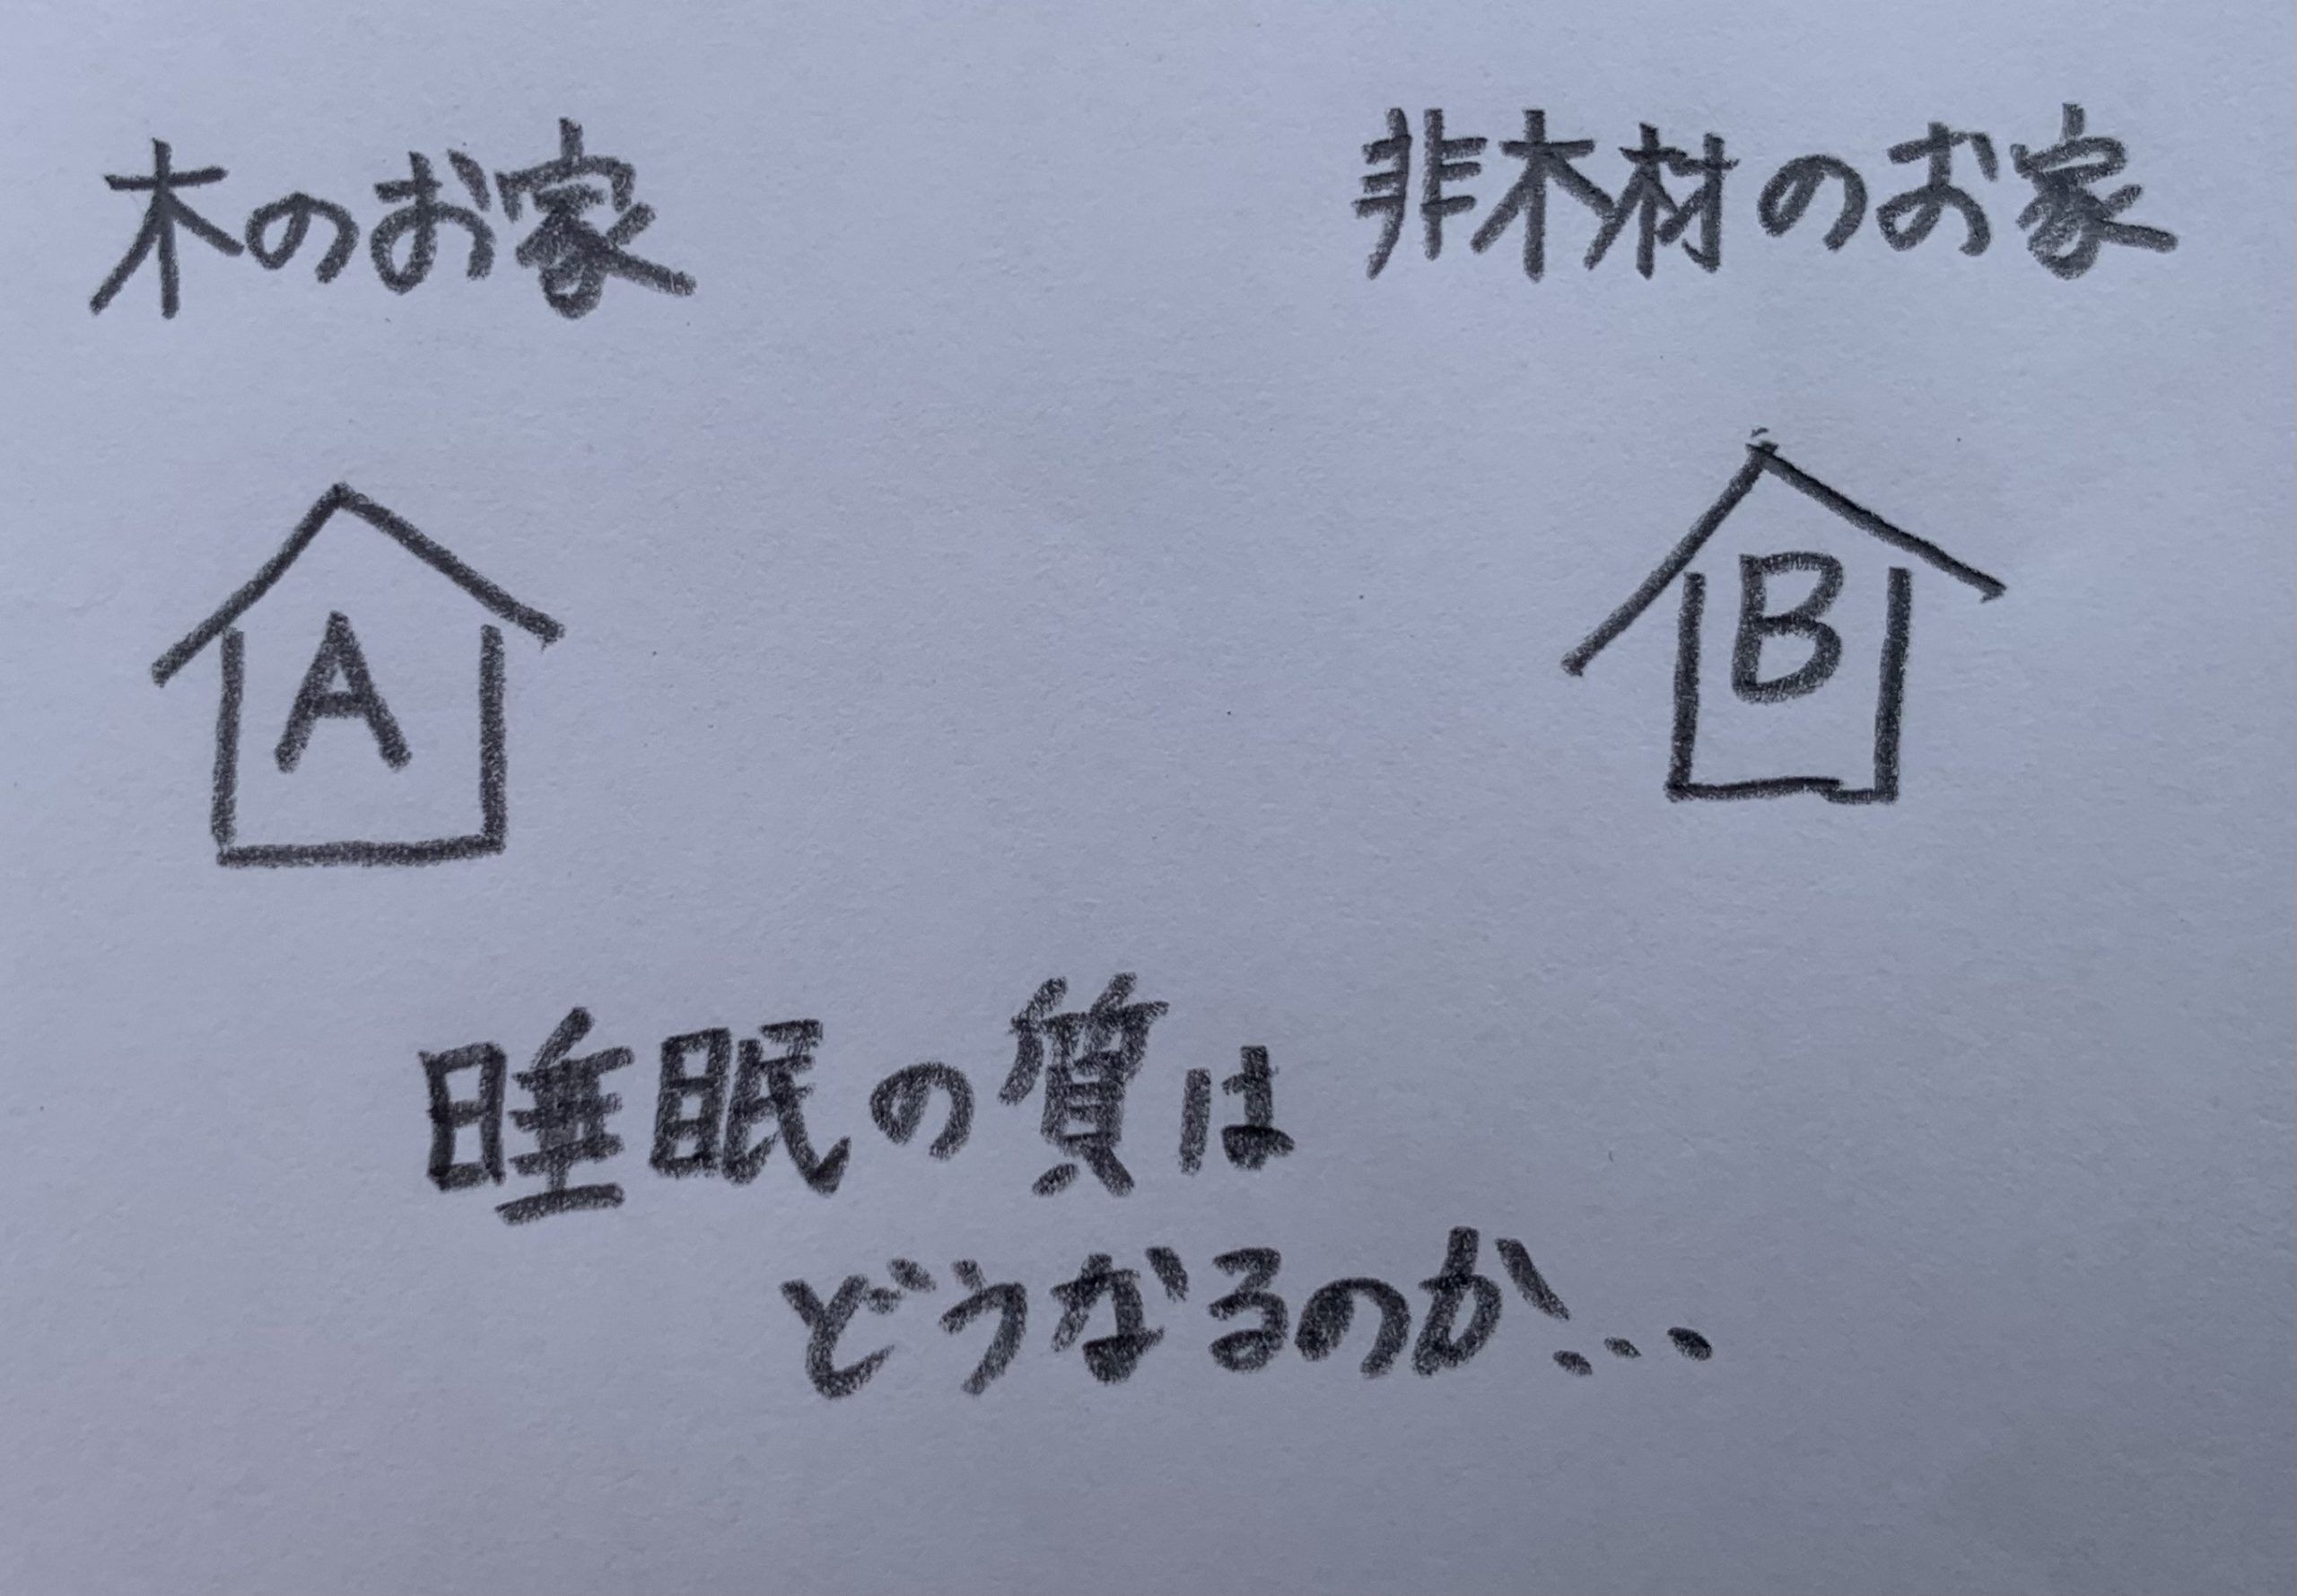 木のお家
非木材のお家
A
B
睡眠の質は
どうなるのか...